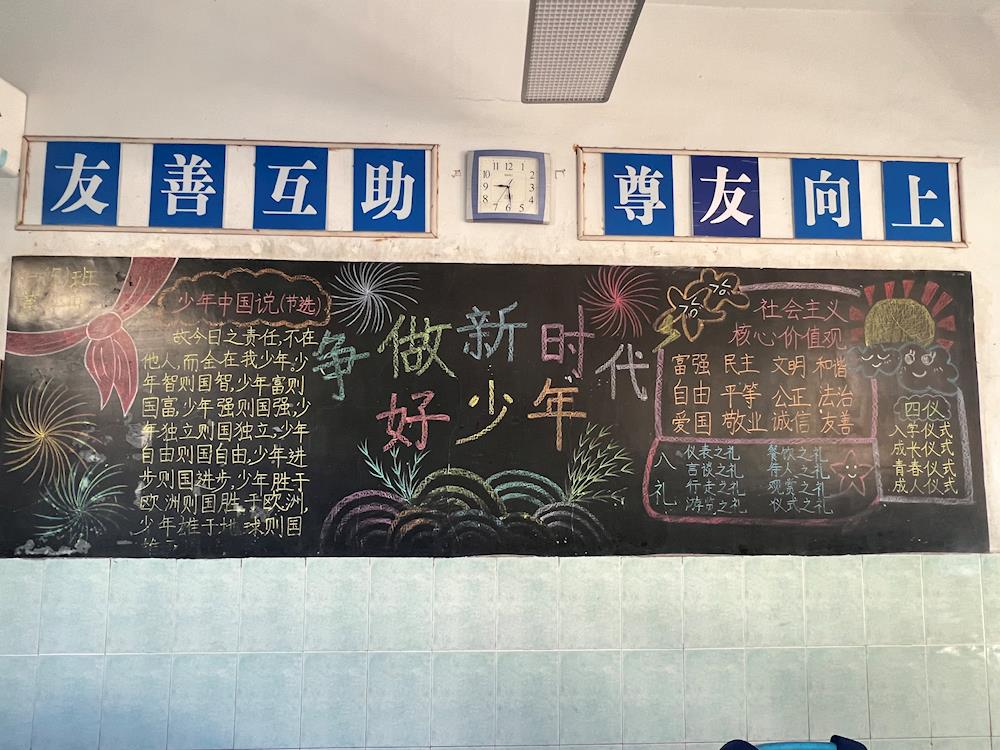 友善互助
尊友向上
12
11
1
10
2
9
3
8
4
7
5
6
班
少年中国说(节选)
故今日之责任,不在
他人,而全在我少年。少
年智则国智,少年富则
国富,少年强则国强,少
年独立则国独立,少年
自由则国自由,少年进
步则国进步,少年胜于
欧洲则国胜于欧洲,
少年雄于地球则国
争做新时代
好少年
社会主义
核心价值观
富强 民主 文明 和谐
自由 平等 公正 法治
爱国 敬业 诚信 友善
八礼
仪表之礼 餐饮之礼
言谈之礼 待人之礼
行走之礼 观赏之礼
游览之礼 仪式之礼
四仪
入学仪式
成长仪式
青春仪式
成人仪式